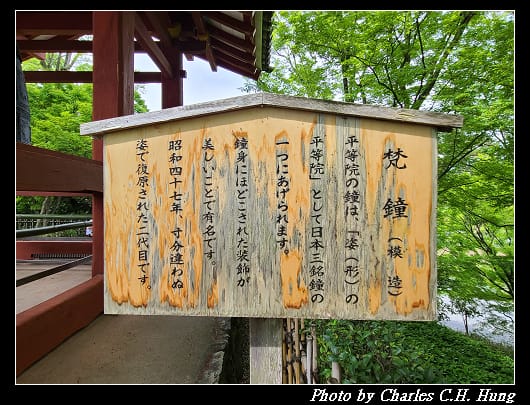 梵鐘（模造）
平等院の鐘は、「姿（形）の
平等院」として日本三銘鐘の
一つにあげられます。
鐘身にほどこされた装飾が
美しいことで有名です。
昭和四十七年、寸分違わぬ
姿で復原された二代目です。
Photo by Charles C.H. Hung